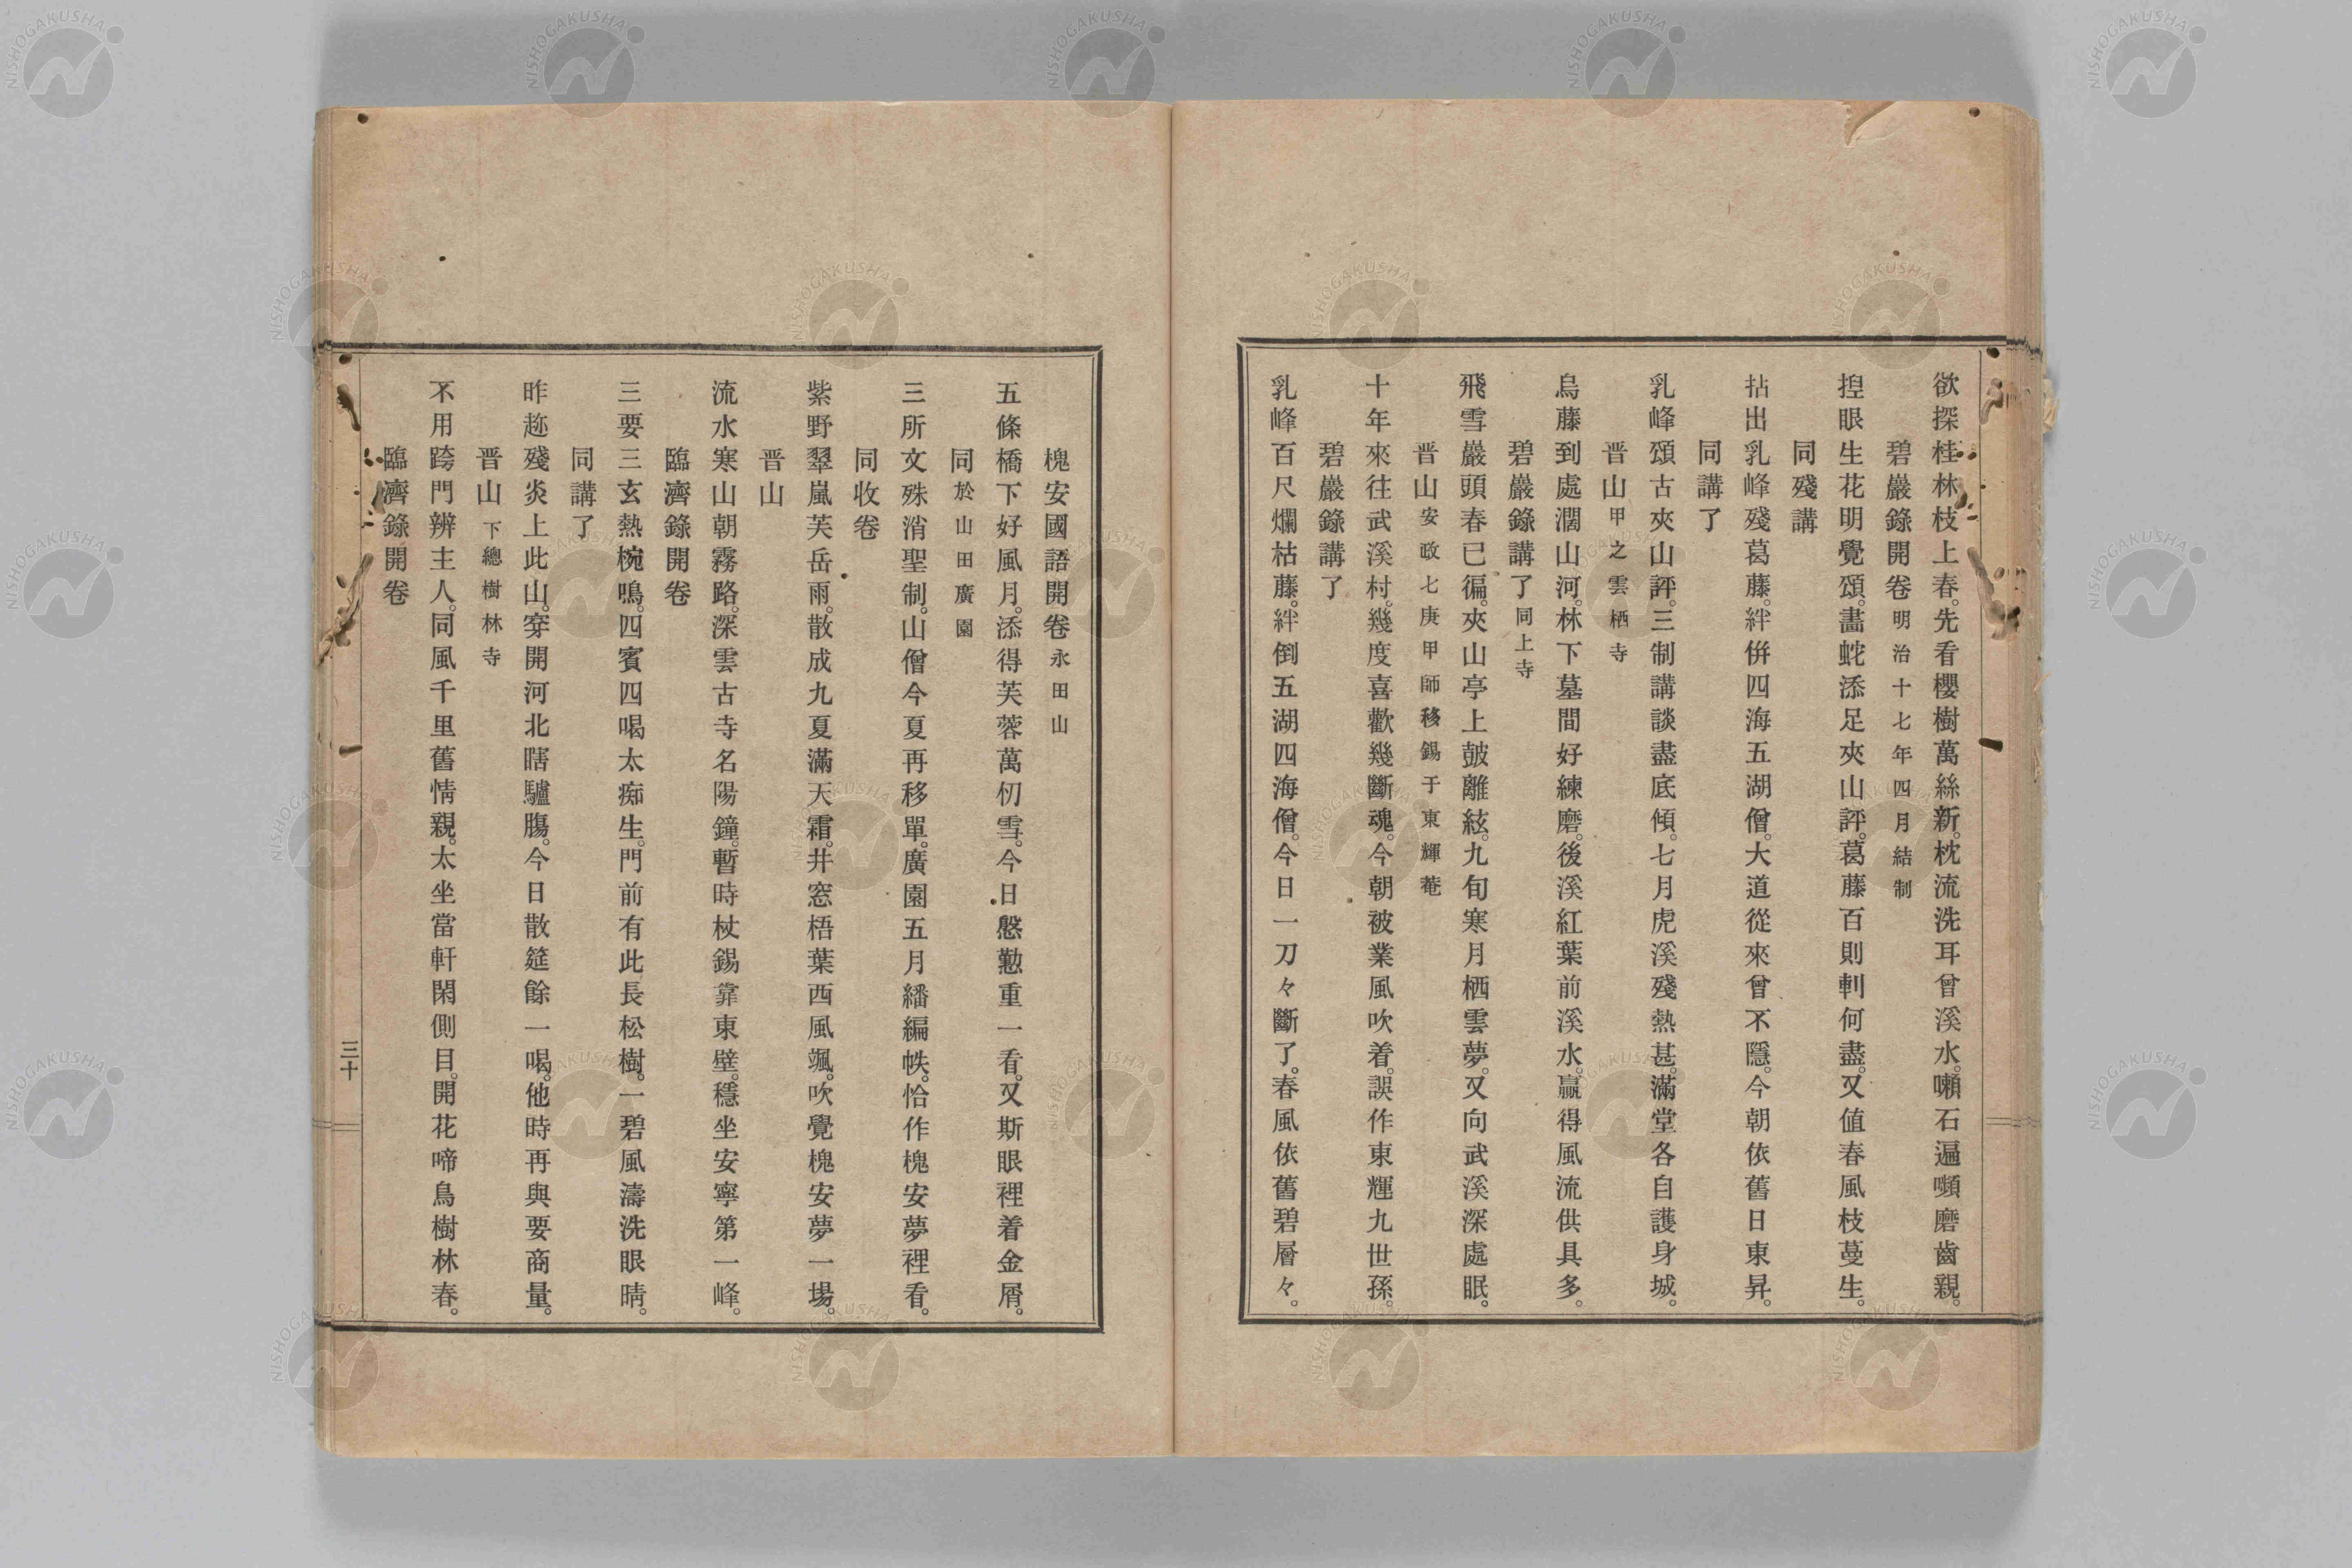 欲探桂林枝上春。先看櫻樹萬絲新。枕流洗耳曾溪水。嗽石遍嚬磨齒親。
碧巖錄開卷 明治十七年四月結制
揑眼生花明覺頌。畵蛇添足夾山評。葛藤百則剌何盡。又値春風枝蔓生。
同殘講
拈出乳峰殘葛藤。絆倂四海五湖僧。大道從來曾不隱。今朝依舊日東昇。
同講了
乳峰頌古夾山評。三制講談盡底傾。七月虎溪殘熱甚。滿堂各自護身城。
晋山 甲之雲栖寺
烏藤到處濶山河。林下墓間好練磨。後溪紅葉前溪水。贏得風流供具多。
碧巖錄講了 同上寺
飛雪巖頭春已徧。夾山亭上皷離絃。九旬寒月栖雲夢。又向武溪深處眠。
晋山 安政七庚申師移錫于東輝菴
十年來往武溪村。幾度喜歡幾斷魂。今朝被業風吹着。誤作東輝九世孫。
碧巖錄講了
乳峰百尺爛枯藤。絆倒五湖四海僧。今日一刀々斷了。春風依舊碧層々。
槐安國語開卷 永田山
五條橋下好風月。添得芙蓉萬仞雪。今日慇懃重一看。又斯眼裡着金屑。
同 於山田廣園
三所文殊消聖制。山僧今夏再移單。廣園五月繙編帙。恰作槐安夢裡看。
同收卷
紫野翠嵐芙岳雨。散成九夏滿天霜。井窓梧葉西風颯。吹覺槐安夢一場。
晋山
流水寒山朝霧路。深雲古寺名陽鐘。暫時杖錫靠東壁。穩坐安寧第一峰。
臨濟錄開卷
三要三玄熱椀鳴。四賓四喝太痴生。門前有此長松樹。一碧風濤洗眼晴。
同講了
昨趂殘炎上此山。穿開河北瞎驢膓。今日散筵餘一喝。他時再與要商量。
晋山 下總樹林寺
不用跨門辨主人。同風千里舊情親。太坐當軒閑側目。開花啼鳥樹林春。
臨濟錄開卷
三十